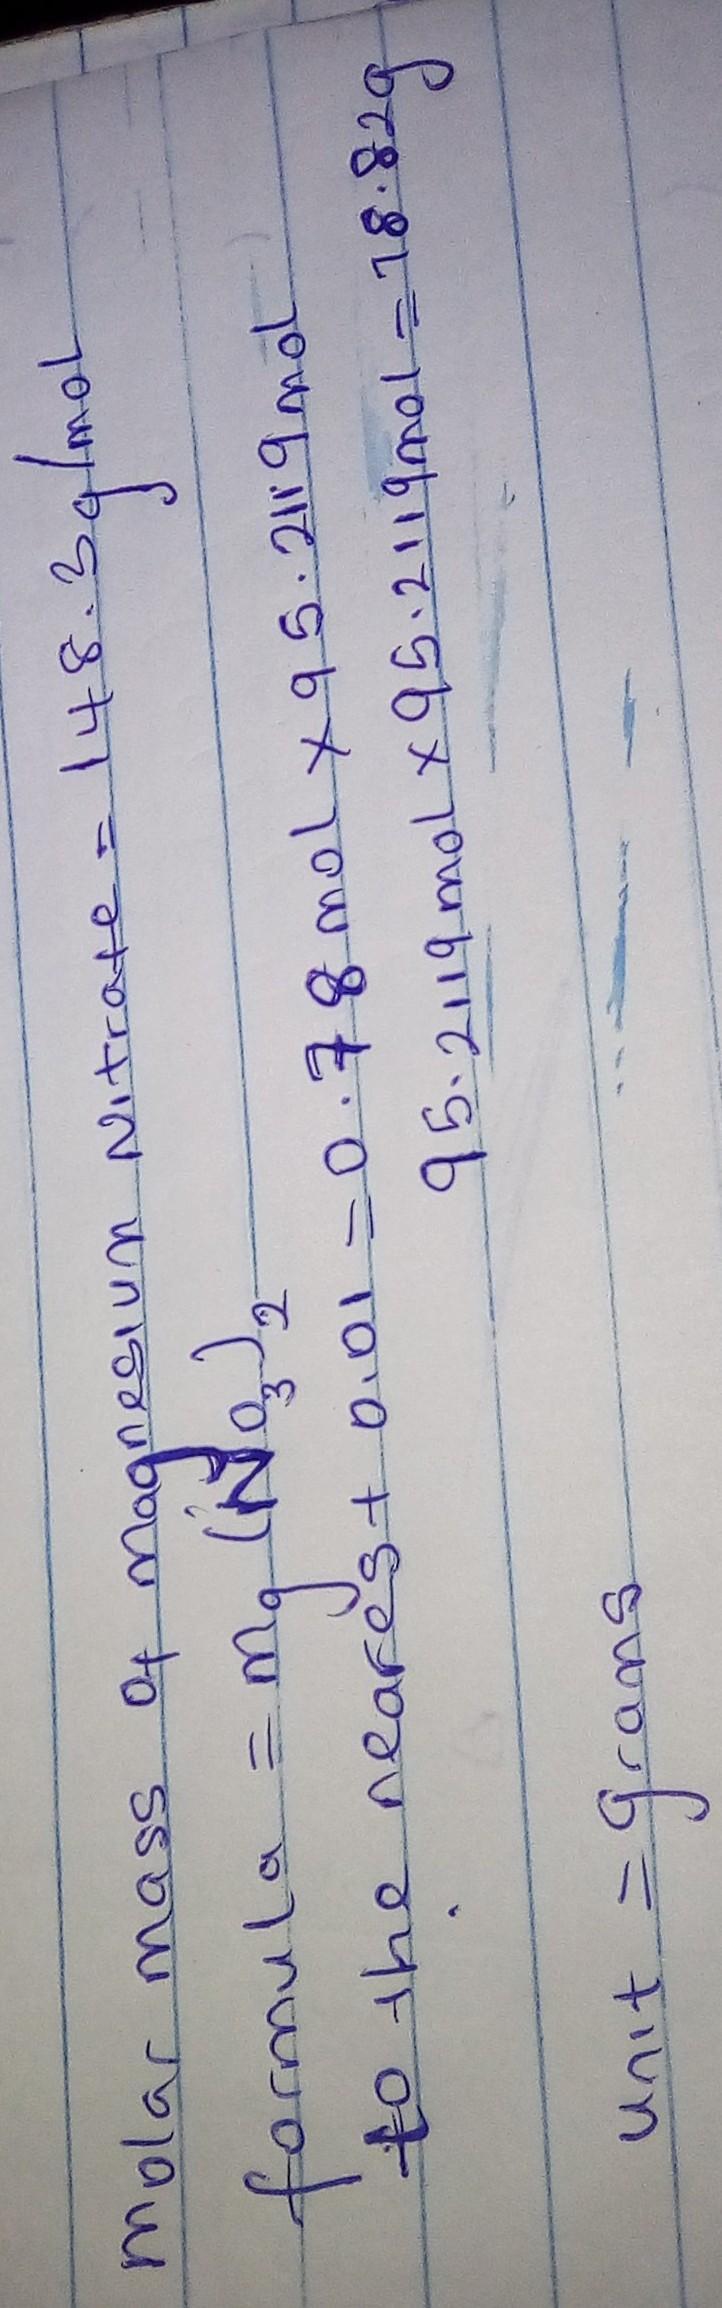 molar mass of magnesium Nitrate = 148.3g/mol
formula = Mg (NO3)2
to the nearest 0.01 = 0.78 mol x 95.211gmol
95.211gmol x 95.211gmol = 78.82g
unit = grams